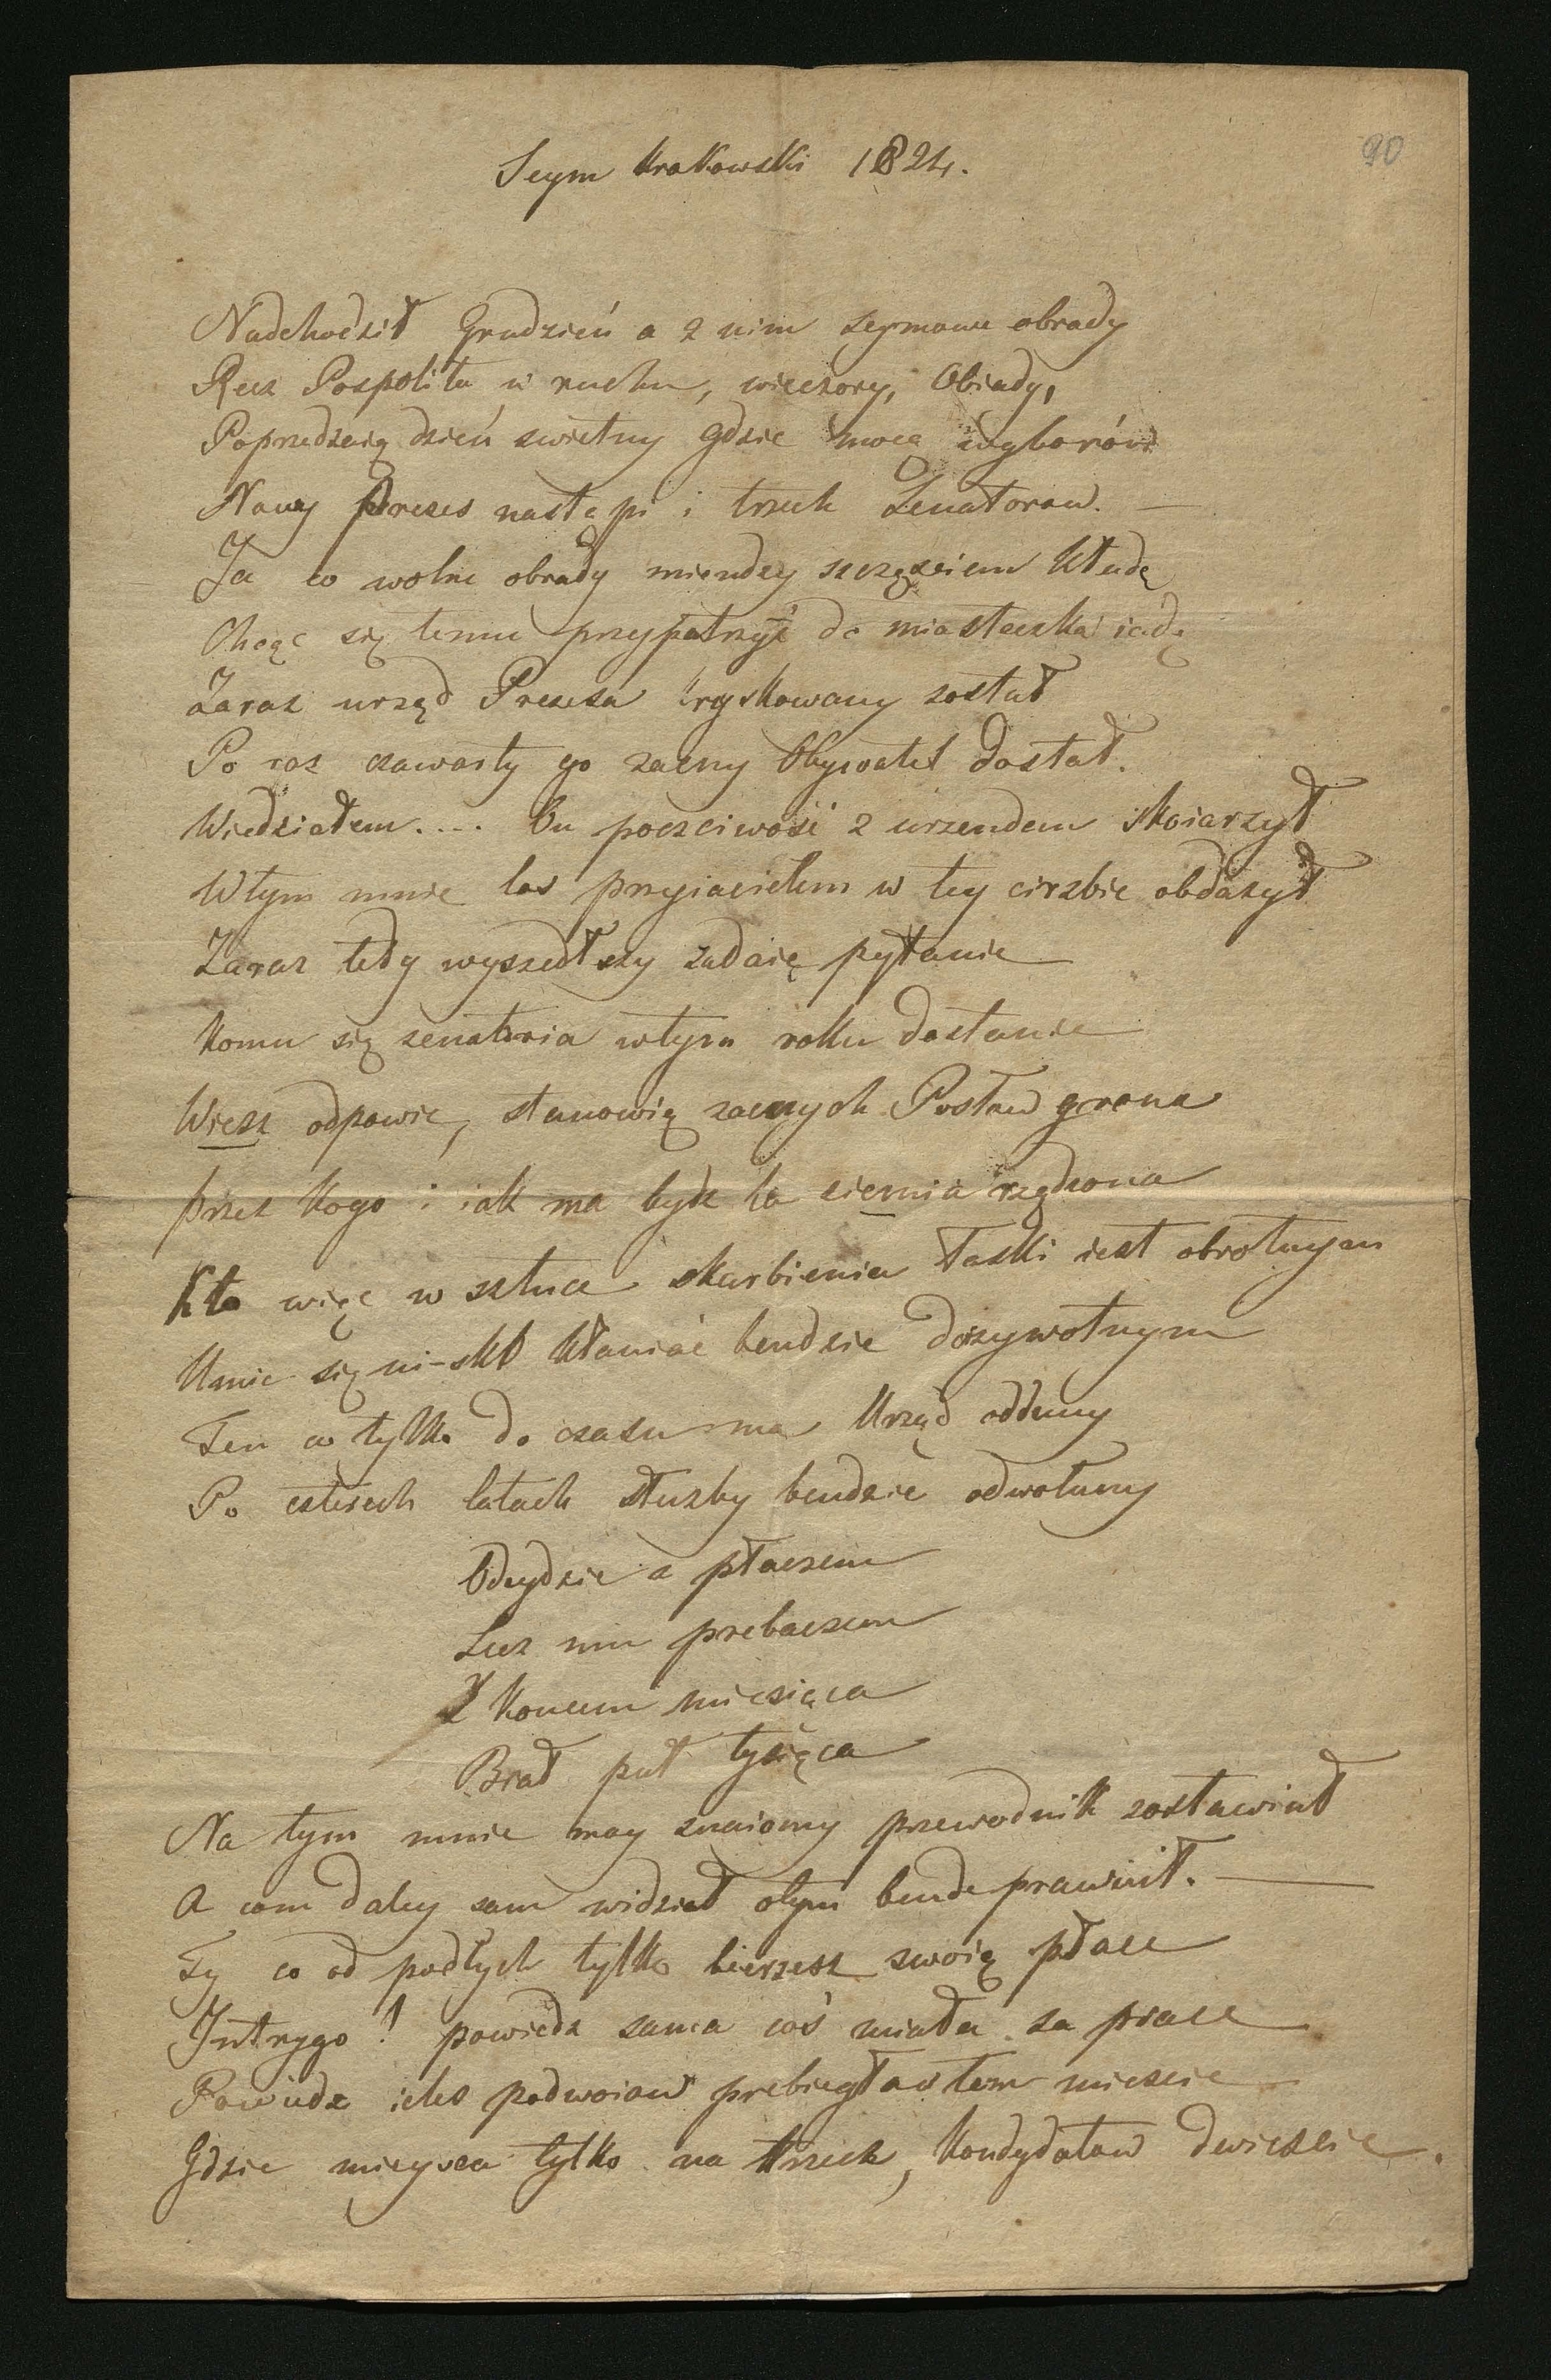 90
Seym Krakowski 1824.
Nadchodził Grudzień a z nim seymowe obrady
Recz Pospolita w ruchu, wieczory, Obiady,
Poprzedzaią dzień swietny gdzie mocą wyborów
Nowy Prezes nastąpi i trzech Senatorow. —
Ja co wolne obrady miendzy szczęsciem kładę
Chcąc się temu przypatrzyć do miasteczka iadę
Zaraz urząd Prezesa kryskowany został
Po raz czwarty go zacny Obywatel dostał.
Wiedziałem.... On poczciwość z urzendem skoiarzył
Wtym mnie los przyiacielem w tey cirzbie obdażył
Zaraz tedy wyszedłszy zadaię pytanie
Komu się senatoria wtym roku dostanie
Wiesz odpowie, stanowią zacnych Posłow grona
przez kogo i iak ma bydz ta ziemia rządzona
Kto więc w sztuce skarbienia łaski iest obrotnym
Umie się ni-sko kłaniać bendzie dożywotnym
Ten co tylko do czasu ma Urząd oddany
Po czterech latach słuzby bendzie odwołany
Odeydzie z płaczem
Lecz mu prebaczem
Z koncem miesiąca
Brał puł tysiąca
Na tym mnie moy znaiomy przewodnik zostawiał
A com daley sam widział otym bende prawiuł. —
Ty co od podłych tylko bierzesz swoią płace
Intrygo! powiedz sama coś miała za prace
Powiedz ileś podwoiow prebiegła w tem miescie
Gdzie mieysca tylko na trzech, kondydatow dwieście.